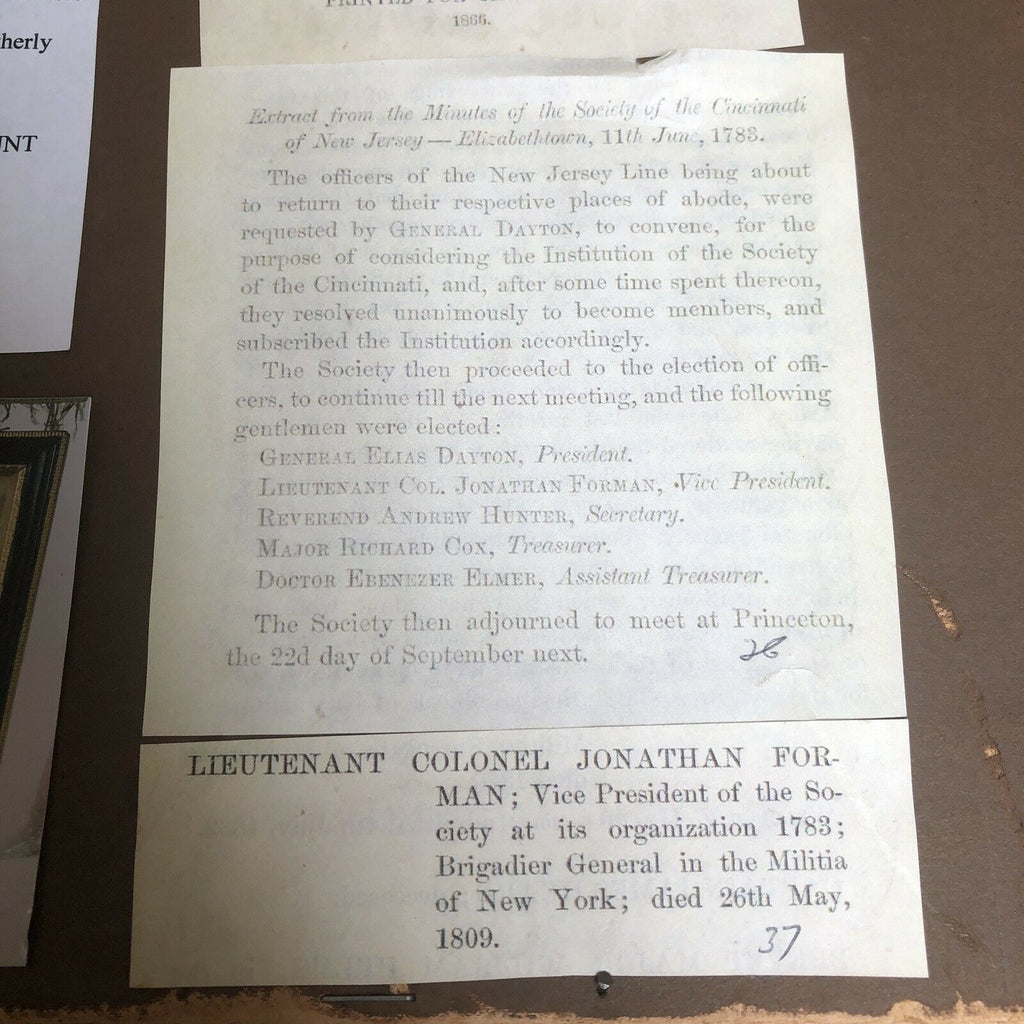 herly
PRINTED FOR
1866.
Extract from the Minutes of the Society of the Cincinnati
of New Jersey — Elizabethtown, 11th June, 1783.
The officers of the New Jersey Line being about
to return to their respective places of abode, were
requested by GENERAL DAYTON, to convene, for the
purpose of considering the Institution of the Society
of the Cincinnati, and, after some time spent thereon,
they resolved unanimously to become members, and
subscribed the Institution accordingly.
The Society then proceeded to the election of offi-
cers, to continue till the next meeting, and the following
gentlemen were elected:
GENERAL ELIAS DAYTON, President.
LIEUTENANT COL. JONATHAN FORMAN, Vice President.
REVEREND ANDREW HUNTER, Secretary.
MAJOR RICHARD COX, Treasurer.
DOCTOR EBENEZER ELMER, Assistant Treasurer.
The Society then adjourned to meet at Princeton,
the 22d day of September next.
26
LIEUTENANT COLONEL JONATHAN FOR-
MAN; Vice President of the So-
ciety at its organization 1783;
Brigadier General in the Militia
of New York; died 26th May,
1809.
37
UNT